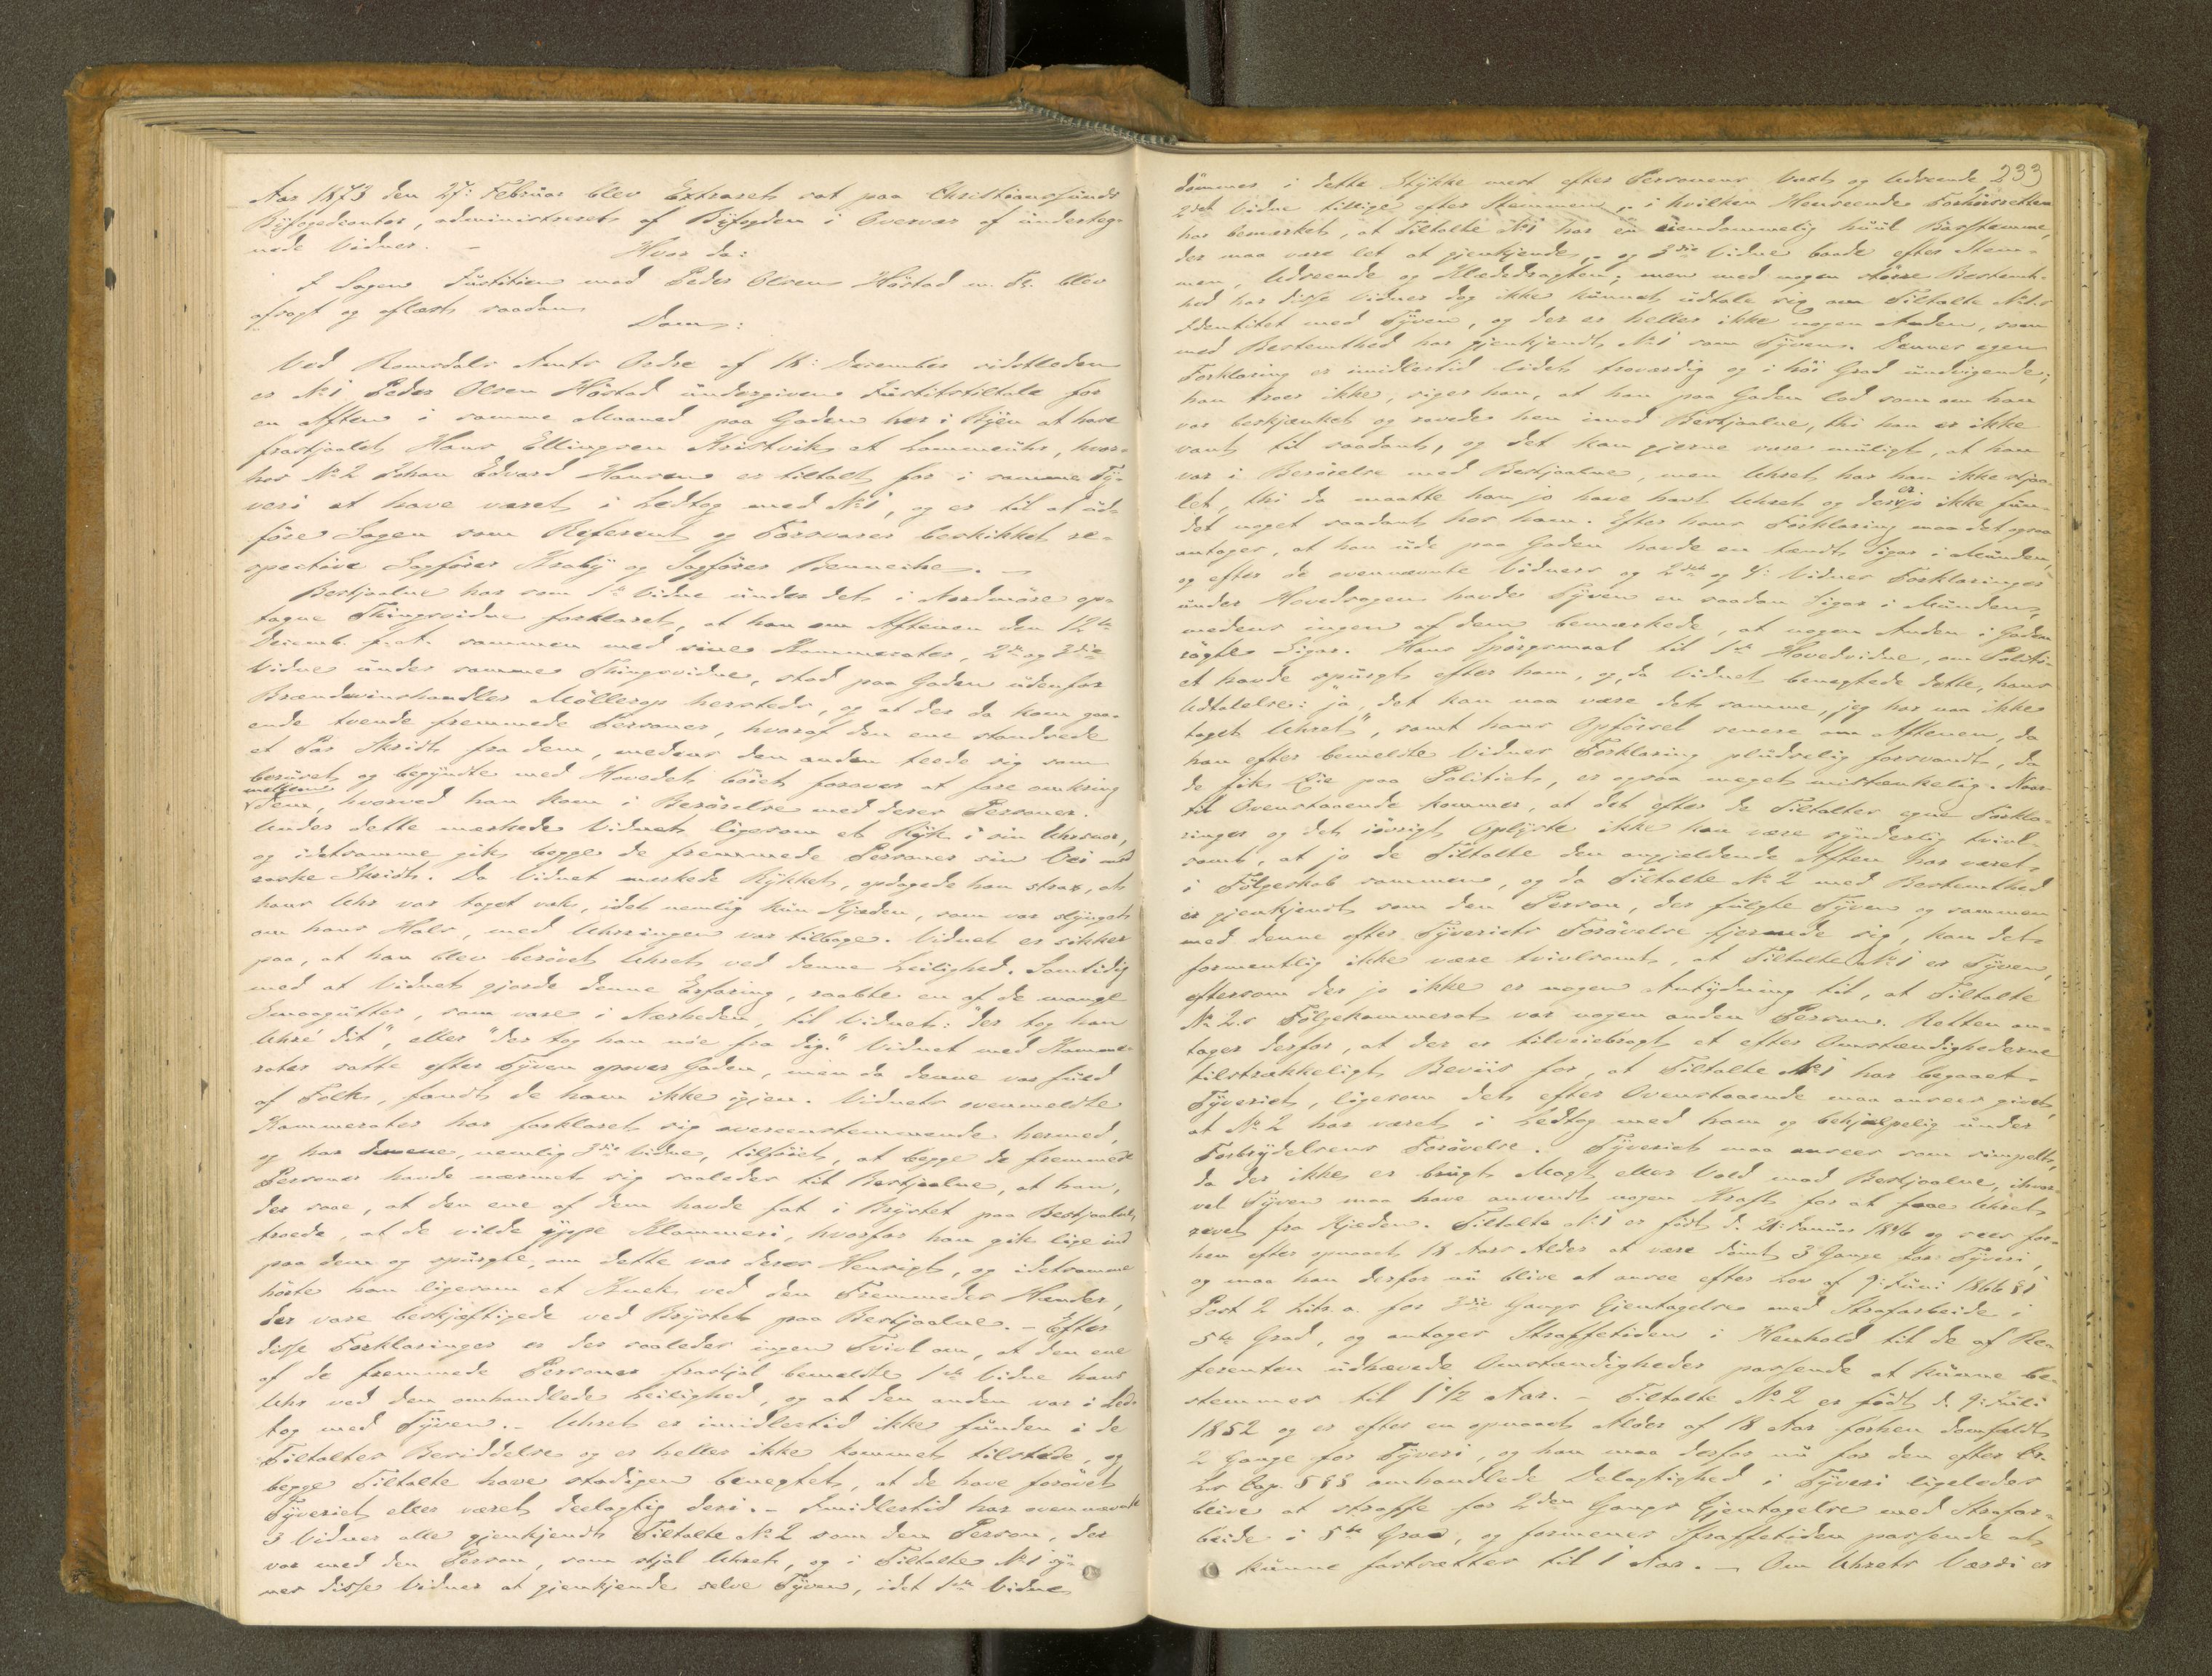 Aar 1873 den 27: Februar blev Extraret sat paa Christianssunds
Byfogedcontor, administreret af Byfogden i Overvær af underteg-
nede Vidner. –
Hvor da:
I Sagen Justitien mod Peder Olsen Höstad m. Fl. blev
afsagt og oplæst saadan
Dom:
Ved Romsdals Amts Ordre af 16: December sidstleden
er No 1 Peder Olsen Höstad undergiven Justitstiltale for
en Aften i samme Maaned paa Gaden her i Byen at have
frastjaalet Hans Ellingsen Kristvik et Lommeuhr, hvor-
hos No 2 Johan Edvard Hansen er tiltalt for i samme Ty-
veri at have været i Ledtog med No 1, og er til at ud-
före Sagen som Referent og Forsvarer beskikket re-
spective Sagförer Kraby og Sagförer Benneche. –
Bestjaalne har som 1ste Vidne under det i Nordmöre op-
tagne Thingsvidne forklaret, at han om Aftenen den 12te
Decemb. f. A. sammen med sine Kammerater, 2det og 3die
Vidne under samme Thingsvidne, stod paa Gaden udenfor
Brændevinshandler Möllerop hersteds, og at der da kom gaa-
ende tvende fremmede Personer, hvoraf den ene standsede
et Par Skridt fra dem, medens den anden teede sig som
beruset og begyndte med Hovedet böiet forover at fare omkring
mellem
dem, hvorved han kom i Berörelse med deres Personer.
Under dette mærkede Vidnet ligesom et Ryk i sin Uhrsnor,
og idetsamme gik begge de fremmede Personer sin Vei med
raske Skridt. Da Vidnet mærkede Rykket, opdagede han strax, at
hans Uhr var taget væk, idet nemlig kun Kjæden, som var slynget
om hans Hals, med Uhrringen var tilbage. Vidnet er sikker
paa, at han blev berövet Uhret ved denne Leilighed. Samtidig
med at Vidnet gjorde denne Erfaring, raabte en af de mange
Smaagutter, som vare i Nærheden, til Vidnet: "der tog han
Uhre' dit", eller "der tog han nie fra dig." Vidnet med Kamme-
rater satte efter Tyven opover Gaden, men da denne var fuld
af Folk, fandt de ham ikke igjen. Vidnets ovenmeldte
Kammerater har forklaret sig overeenstemmende hermed,
og har denene, nemlig 3die Vidne, tilföiet, at begge de fremmede
Personer havde nærmet sig saaledes til Bestjaalne, at han,
der saae, at den ene af dem havde fat i Brystet paa Bestjaalne,
troede, at de vilde yppe Klammeri, hvorfor han gik lige ind
paa dem og spurgte, om dette var deres Hensigt, og idetsamme
hörte han ligesom et Knæk ved den Fremmedes Hænder,
der vare beskjæftigede ved Brystet paa Bestjaalne. – Efter
disse Forklaringer er der saaledes ingen Tvivl om, at den ene
af de fremmede Personer frastjal bemeldte 1ste Vidne hans
Uhr ved den omhandlede Leilighed, og at den anden var i Led-
tog med Tyven. – Uhret er imidlertid ikke funden i de
Tiltaltes Besiddelse og er heller ikke kommet tilstede, og
begge Tiltalte have stadigen benegtet, at de have forövet
Tyveriet eller været deelagtig deri. – Imidlertid har ovennævnte
3 Vidner alle gjenkjendt Tiltalte No 2 som den Person, der
var med den Person, som stjal Uhret, og i Tiltalte No 1 sy-
nes disse Vidner at gjenkjende selve Tyven, idet 1ste Vidne
233
dömmer i dette Stykke mest efter Personens Vext og Udseende,
2det Vidne tillige efter Stemmen, – i hvilken Henseende Forhörsretten
har bemærket, at Tiltalte No 1 har en eiendommelig huul Basstemme,
der maa være let at gjenkjende, – og 3die Vidne baade efter Stem-
men, Udseende og Klædedragten; men med nogen större Bestemt-
hed har disse Vidner dog ikke kunnet udtale sig om Tiltalte No 1.s
Identitet med Tyven, og der er heller ikke nogen Anden, som
med Bestemthed har gjenkjendt No 1 som Tyven. Dennes egen
Forklaring er imidlertid lidet troværdig og i höi Grad undvigende;
han troer ikke, siger han, at han paa Gaden lod som om han
var beskjænket og ravede hen imod Bestjaalne, thi han er ikke
vant til saadant, og det kan gjerne være muligt, at han
var i Berörelse med Bestjaalne, men Uhret har han ikke stjaa-
let, thi da maatte han jo have havt Uhret og der er jo ikke fun-
det noget saadant hos ham. Efter hans Forklaring maa det ogsaa
antages, at han ude paa Gaden havde en tændt Sigar i Munden,
og efter de ovennævnte Vidners og 2det og 4: Vidnes Forklaringer
under Hovedsagen havde Tyven en saadan Sigar i Munden,
medens ingen af dem bemærkede, at nogen Anden i Gaden
rögte Sigar. Hans Spörgsmaal til 1ste Hovedvidne, om Politi-
et havde spurgt efter ham, og, da Vidnet benegtede dette, hans
Udtalelse: "ja, det kan naa være det samme, jeg har naa ikke
taget Uhret", samt hans Opförsel senere om Aftenen, da
han efter bemeldte Vidnes Forklaring pludselig forsvandt, da
de fik Öie paa Politiet, er ogsaa meget mistænkelig. Naar
til Ovenstaaende kommer, at det efter de Tiltaltes egne Forkla-
ringer og det iövrigt Oplyste ikke kan være synderlig tvivl-
somt, at jo de Tiltalte den angjældende Aften har været
i Fölgeskab sammen, og da Tiltalte No 2 med Bestemthed
er gjenkjendt som den Person, der fulgte Tyven og sammen
med denne efter Tyveriets Forövelse fjernede sig, kan det
formentlig ikke være tvivlsomt, at Tiltalte No 1 er Tyven,
eftersom der jo ikke er nogen Antydning til, at Tiltalte
No 2.s Fölgekammerat var nogen anden Person. Retten an-
tager derfor, at der er tilveiebragt et efter Omstændighederne
tilstrækkeligt Beviis for, at Tiltalte No 1 har begaaet
Tyveriet, ligesom det efter Ovenstaaende maa ansees givet,
at No 2 har været i Ledtog med ham og behjælpelig under
Forbrydelsens Forövelse. Tyveriet maa ansees som simpelt,
da der ikke er brugt Magt eller Vold mod Bestjaalne, ihvor-
vel Tyven maa have anvendt nogen Kraft for at faae Uhret
revet fra Kjæden. Tiltalte No 1 er födt d. 21: Januar 1846 og sees for-
hen efter opnaaet 18 Aars Alder at være dömt 3 Gange for Tyveri,
og maa han derfor nu blive at ansee efter Lov af 9: Juni 1866 § 1
Post 2 Litr. a. for 3die Gangs Gjentagelse med Strafarbeide i
5te Grad, og antages Straffetiden i Henhold til de af Re-
ferenten udhævede Omstændigheder passende at kunne be-
stemmes til 1 1/2 Aar. – Tiltalte No 2 er födt d. 9: Juli
1852 og er efter en opnaaet Alder af 18 Aar forhen domfældt
2 Gange for Tyveri, og han maa derfor nu for den efter Cr.
Lov Cap. 5 § 5 omhandlede Delagtighed i Tyveri ligeledes
blive at straffe for 2den Gangs Gjentagelse med Strafar-
beide i 5te Grad, og formenes Straffetiden passende at
kunne fastsættes til 1 Aar. – Om Uhrets Værdi er